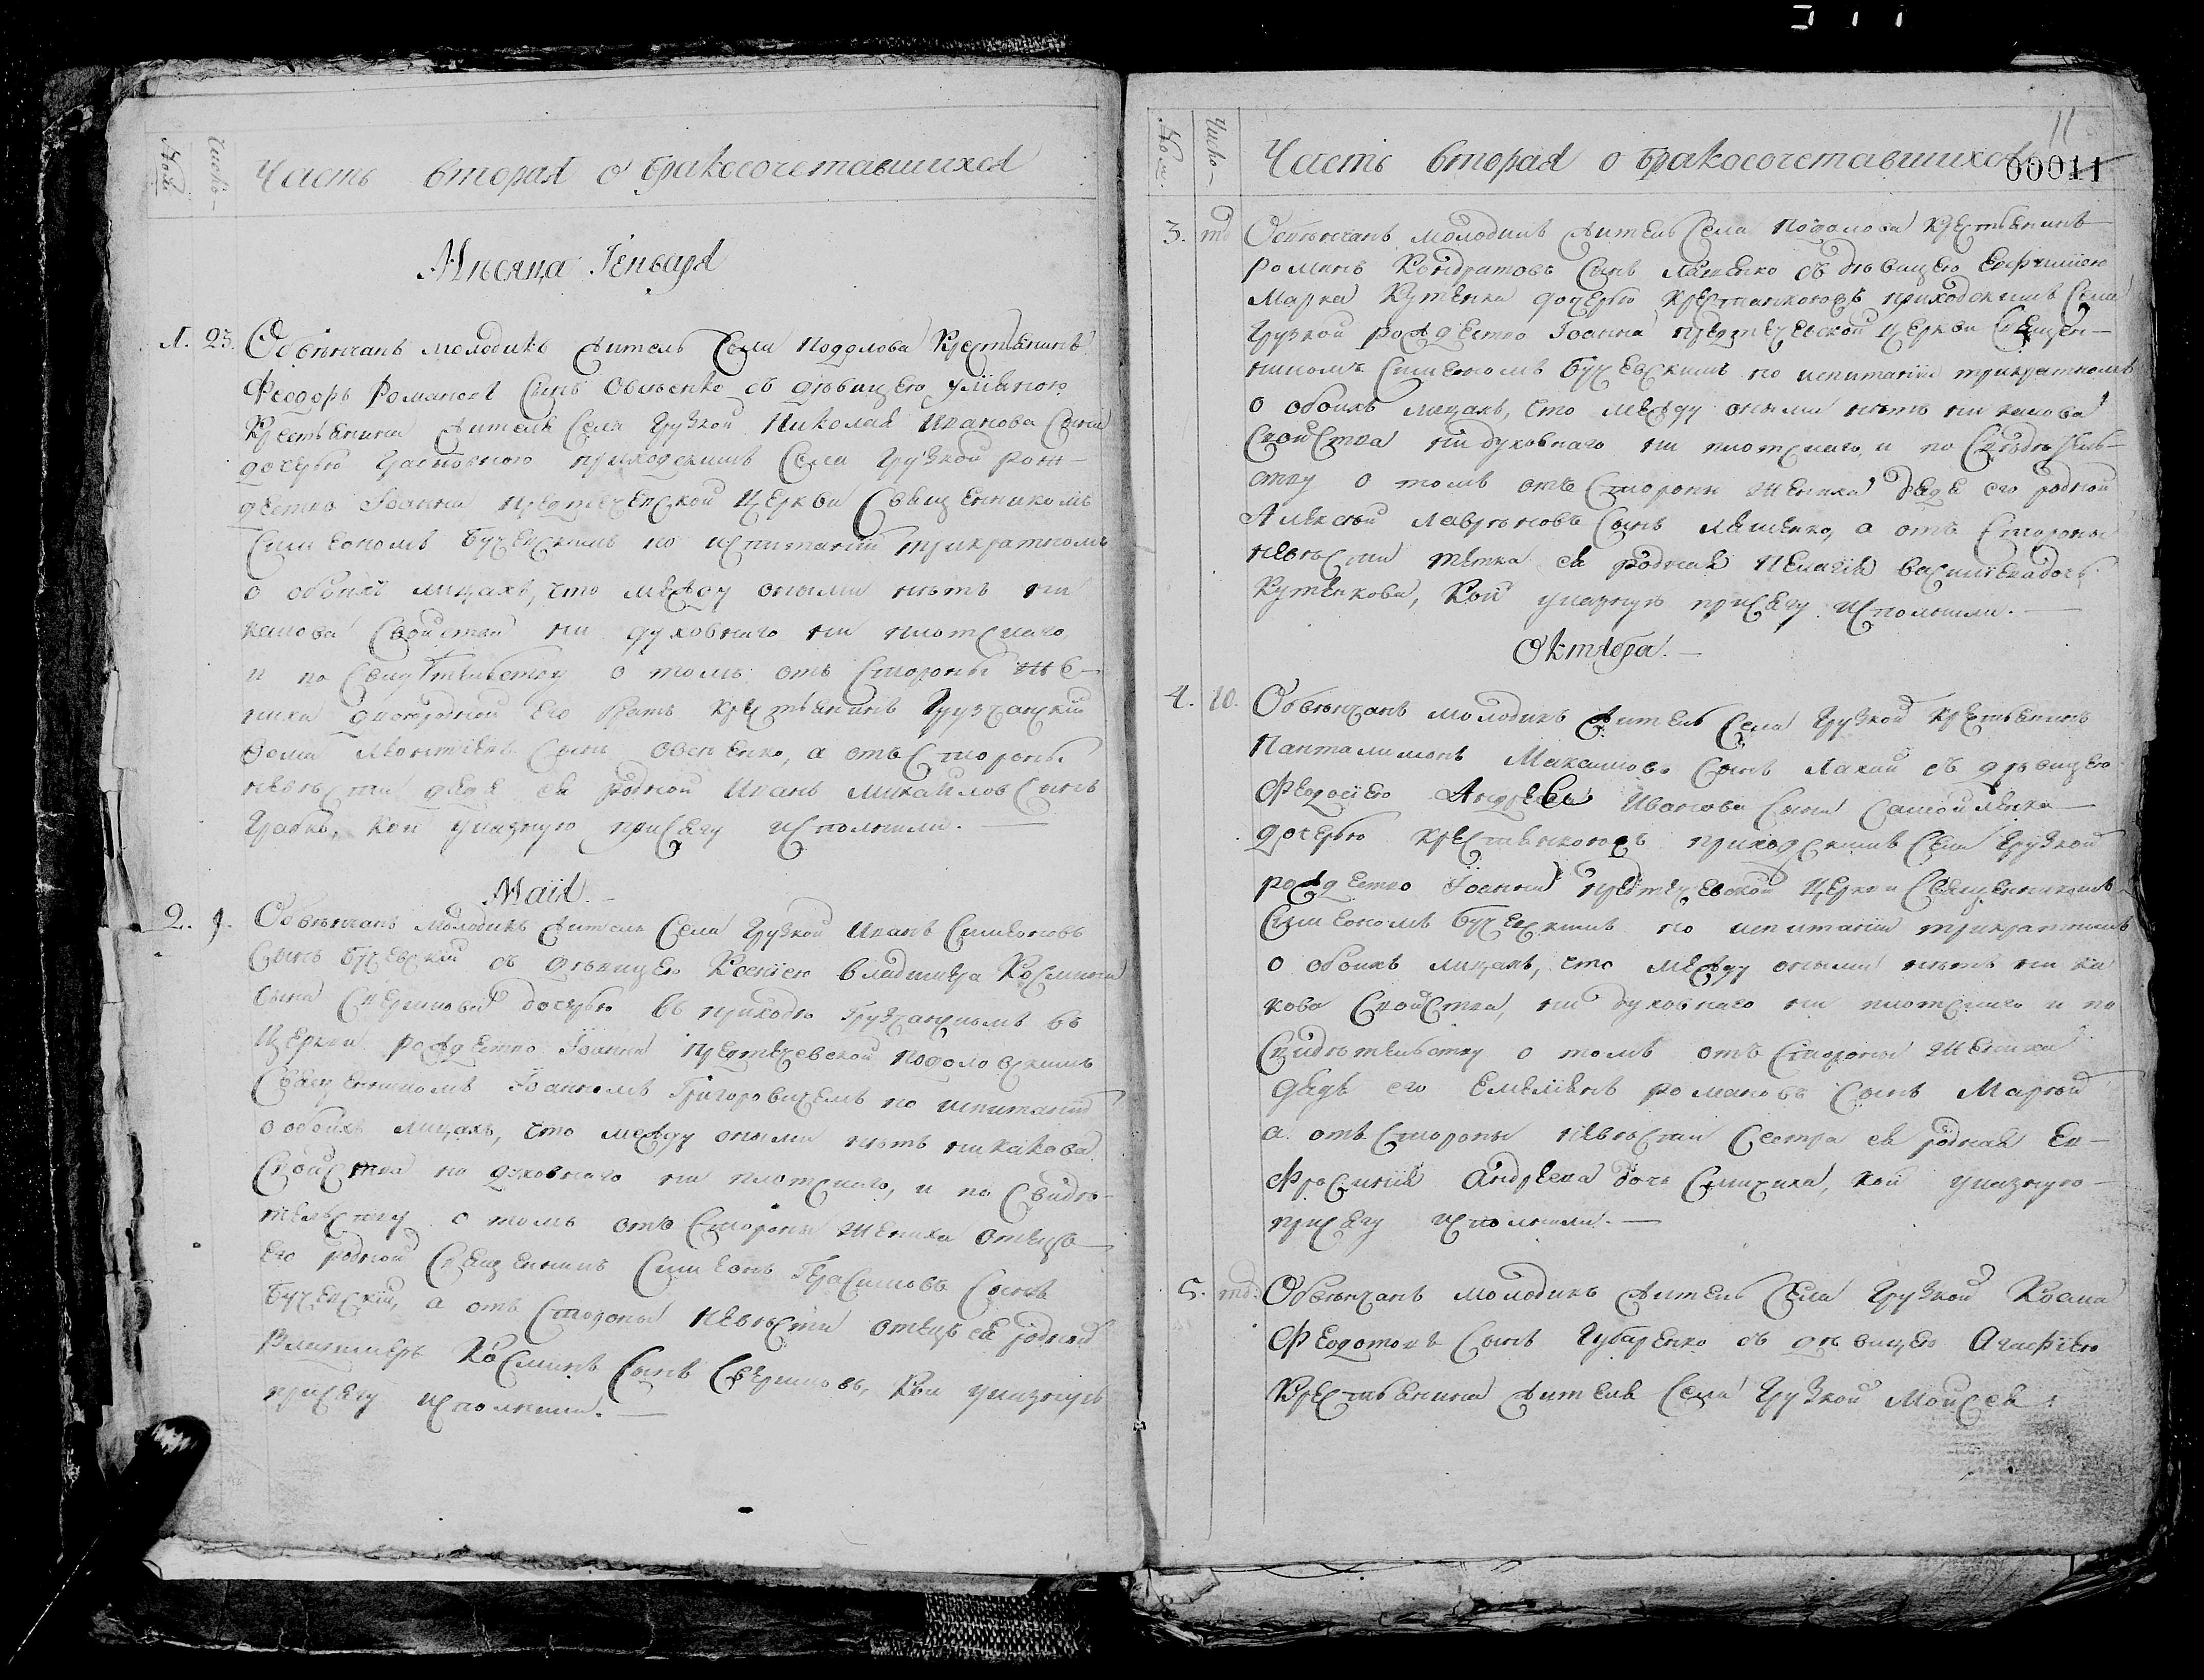 Число
Ной
Часть вторая о бракосочетавшихся
Мѣсяца Генваря
1. 23. Обвѣнчанъ молодикъ житель села Подолова крестьянинъ
Феодоръ Романовъ сынъ съ дѣвицею Улияною
крестьянина жителя села Грузкой Николая Иванова сына
дочерью приходскимъ села Грузкой рож
дество Иоанна предтечевской церкви священникомъ
Симеономъ Бучевскимъ по испытании трикратномъ
о обоихъ лицахъ, что между оными нѣтъ ни
какова свойства ни духовнаго ни плотскаго,
и по свидѣтельству о томъ отъ стороны же-
ниха двоюродной его братъ крестьянинъ Грузчанский
сынъ а отъ стороны
невѣсти дядя ея родной Иванъ Михайловъ сынъ
кои указную присягу исполнили.
Маия.
2. Обвѣнчанъ молодикъ житель села Грузкой Иванъ Симеоновъ
сынъ Бучевский съ дѣвицею Ксениею Владимера Космина
сына дочерью въ приходѣ Грузчанскомъ въ
церкви рождество Иоанна предтечевской Подоловскимъ
священникомъ Иоанномъ Григоровичемъ по испытании
о обоихъ лицахъ, что между оными нѣтъ никакова
свойства ни духовнаго ни плотскаго, и по свидѣ-
тельству о томъ отъ стороны жениха отецъ
его родной священникъ Симеонъ Герасимовъ сынъ
Бучевский, а отъ стороны невѣсти отецъ ея родной
Владимеръ Косминъ сынъ кои указную
присягу исполнили.
Ной.
Число
11
Часть вторая о бракосочетавшихся
00011
3. Обвѣнчанъ молодикъ житель села Подолова крестьянинъ
Романъ Кондратовъ сынъ съ дѣвицею Евфимиею
Марка Кутенка дочерью крестьянкою приходскимъ села
Грузкой рождество Иоанна предтечевской церкви священ-
никомъ Симеономъ Бучевскимъ по испытании трикратномъ
о обоихъ лицахъ, что между оными нѣтъ ни какова
свойства ни духовнаго ни плотскаго, и по свидѣтель-
ству о томъ отъ стороны жениха дядя его родной
Алексѣй сынъ а отъ стороны
невѣсти тетка ея родная Пелагия
Кутенкова, кои указную присягу исполнили.
Октября.
4. 10. Обвѣнчанъ молодикъ житель села Грузкой крестьянинъ
Панталимонъ Максимовъ сынъ съ дѣвицею
Феодосиею Андрея Иванова сына Самойленка
дочерью крестьянкою приходскимъ села Грузкой
рождество Иоанна предтечевской церкви священникомъ
Симеономъ Бучевскимъ по испытании трикратномъ
о обоихъ лицахъ, что между оными нѣтъ ни ка
кова свойства, ни духовнаго ни плотскаго и по
свидѣтельству о томъ отъ стороны жениха
дядя его Емелиянъ Романовъ сынъ
а отъ стороны невѣсти сестра ея родная Ев-
фросиния Андреева дочь кои указную
присягу исполнили.
5. Обвѣнчанъ молодикъ житель села Грузкой Косма
Феодотовъ сынъ Губаренко съ дѣвицею Агафиею
крестьянина жителя села Грузкой Моисея